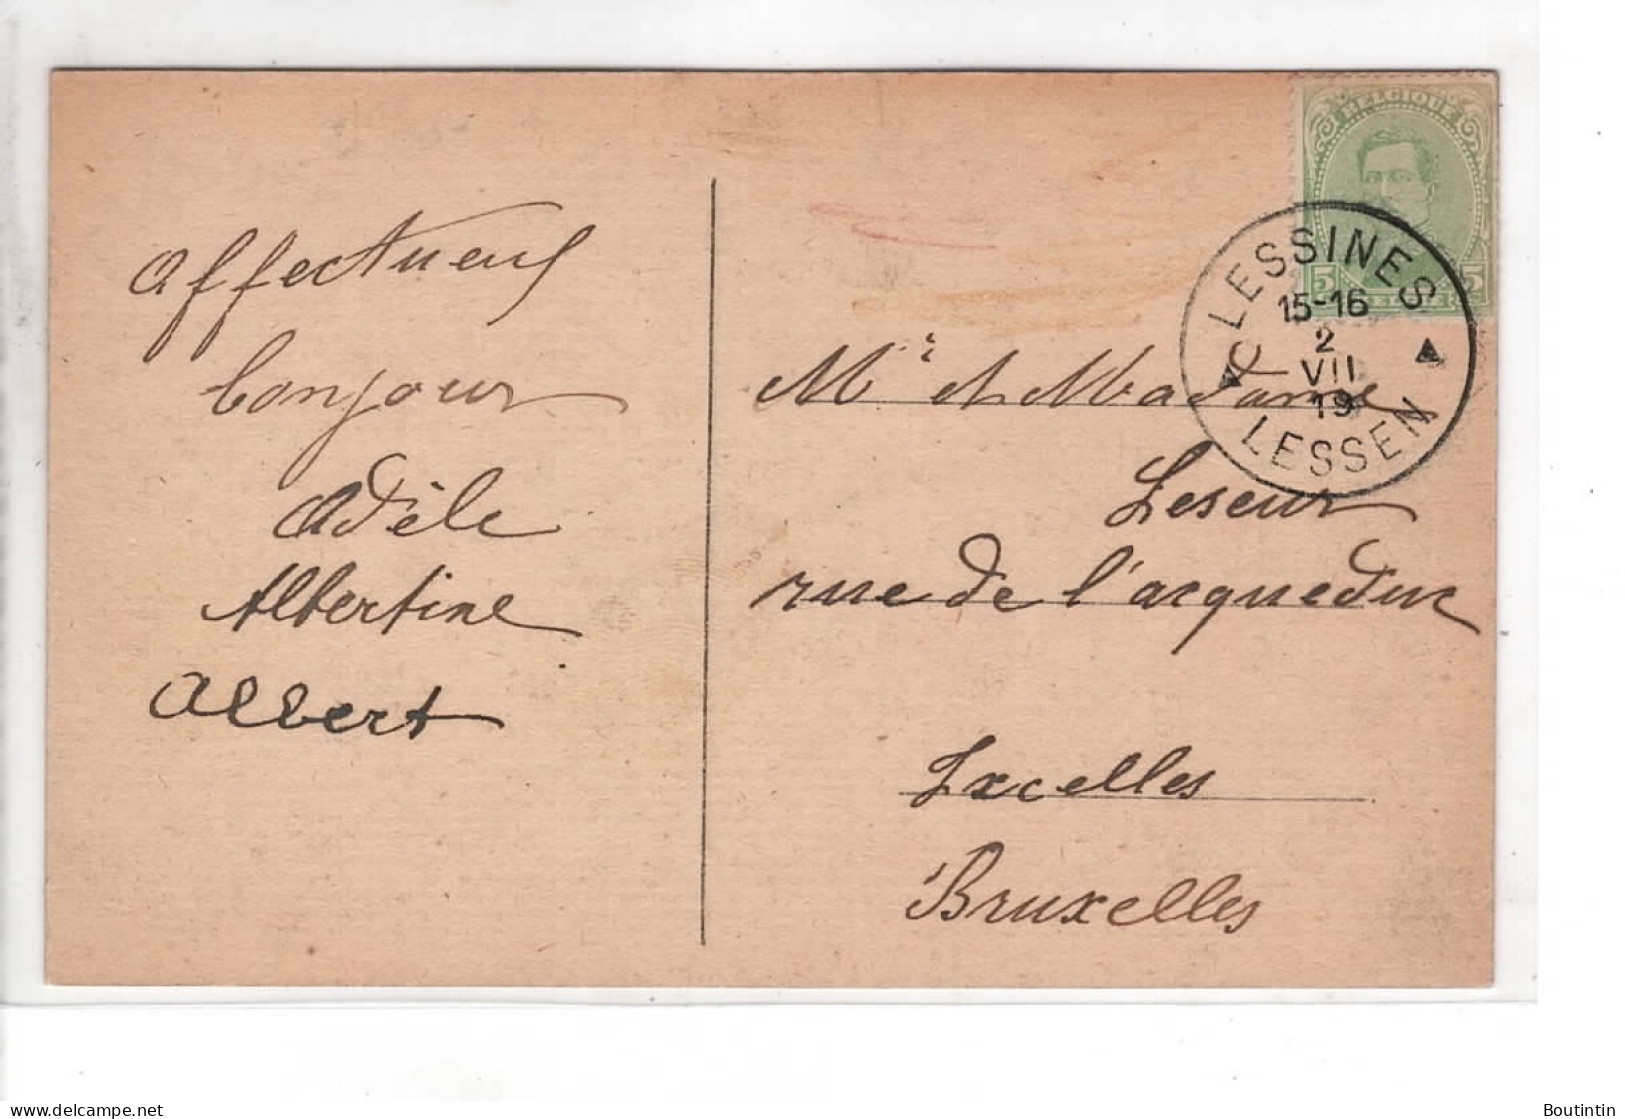 Affectueux
bonjour
Adèle
Albertine
Albert
BELGIQUE
5 5
LESSINES
15-16
2
VII
19
LESSEN
Mr et Madame
Leseur
rue de l'acqueduc
Ixcelles
Bruxelles
www.delcampe.net
Boutintin